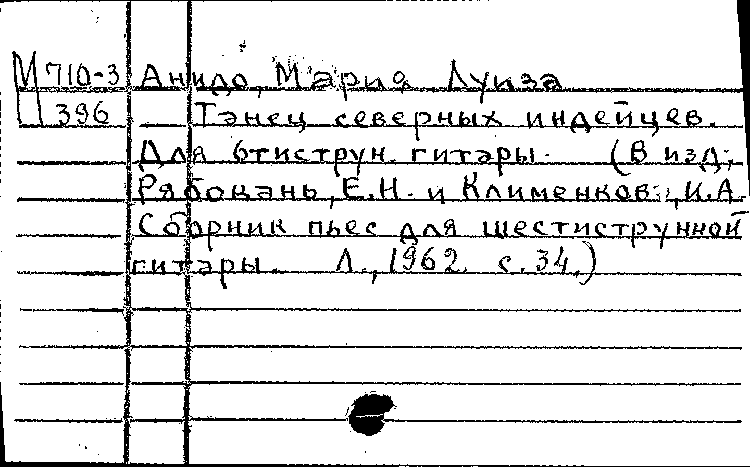 М 710-3 Анидо, Мария Луиза
396 Танец северных индейцев.
Для 6тиструн. гитары. (В изд.:
Рябоконь, Е.Н. и Клименков, И.А.
Сборник пьес для шестиструнной
гитары. Л., 1962. с. 34.)